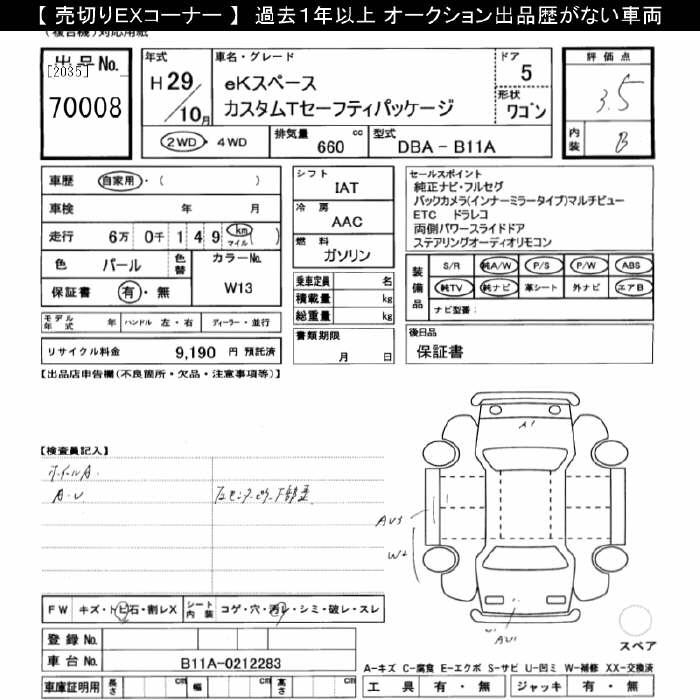 【 売切りEXコーナー 】 過去1年以上 オークション出品歴がない車両
(複合機)対応用紙
出品No.
[2035]
70008
年式
H 29/10月
車名・グレード
eKスペース
カスタムTセーフティパッケージ
ドア
5
形状
ワゴン
2WD・4WD
排気量
660 cc
型式
DBA - B11A
評価点
3.5
内装
B
車歴 自家用・( )
車検 年 月
走行 6万 0千 1 4 9 km マイル ( )
色 パール
色替
カラーNo.
W13
保証書 有・無
モデル年式 年
ハンドル 左・右
ディーラー・並行
リサイクル料金 9,190 円 預託済
シフト
IAT
冷房
AAC
燃料
ガソリン
乗車定員 名
積載量 kg
総重量 kg
書類期限
月 日
セールスポイント
純正ナビ・フルセグ
バックカメラ(インナーミラータイプ)マルチビュー
ETC ドラレコ
両側パワースライドドア
ステアリングオーディオリモコン
装備品
S/R 純A/W P/S P/W ABS
純TV 純ナビ 革シート 外ナビ エアB
ナビ型番:
後日品
保証書
【出品店申告欄(不良箇所・欠品・注意事項等)】
【検査員記入】
ホイールA.
A-U
A1
AU3
W2
AU1
FW キズ・トビ石・割レX
シート内装 コゲ・穴・汚レ・シミ・破レ・スレ
登録No.
車台No. B11A-0212283
車庫証明用 長さ cm 幅 cm 高さ cm
スペア
A-キズ C-腐食 E-エクボ S-サビ U-凹ミ W-補修 XX-交換済
工具 有・無 ジャッキ 有・無